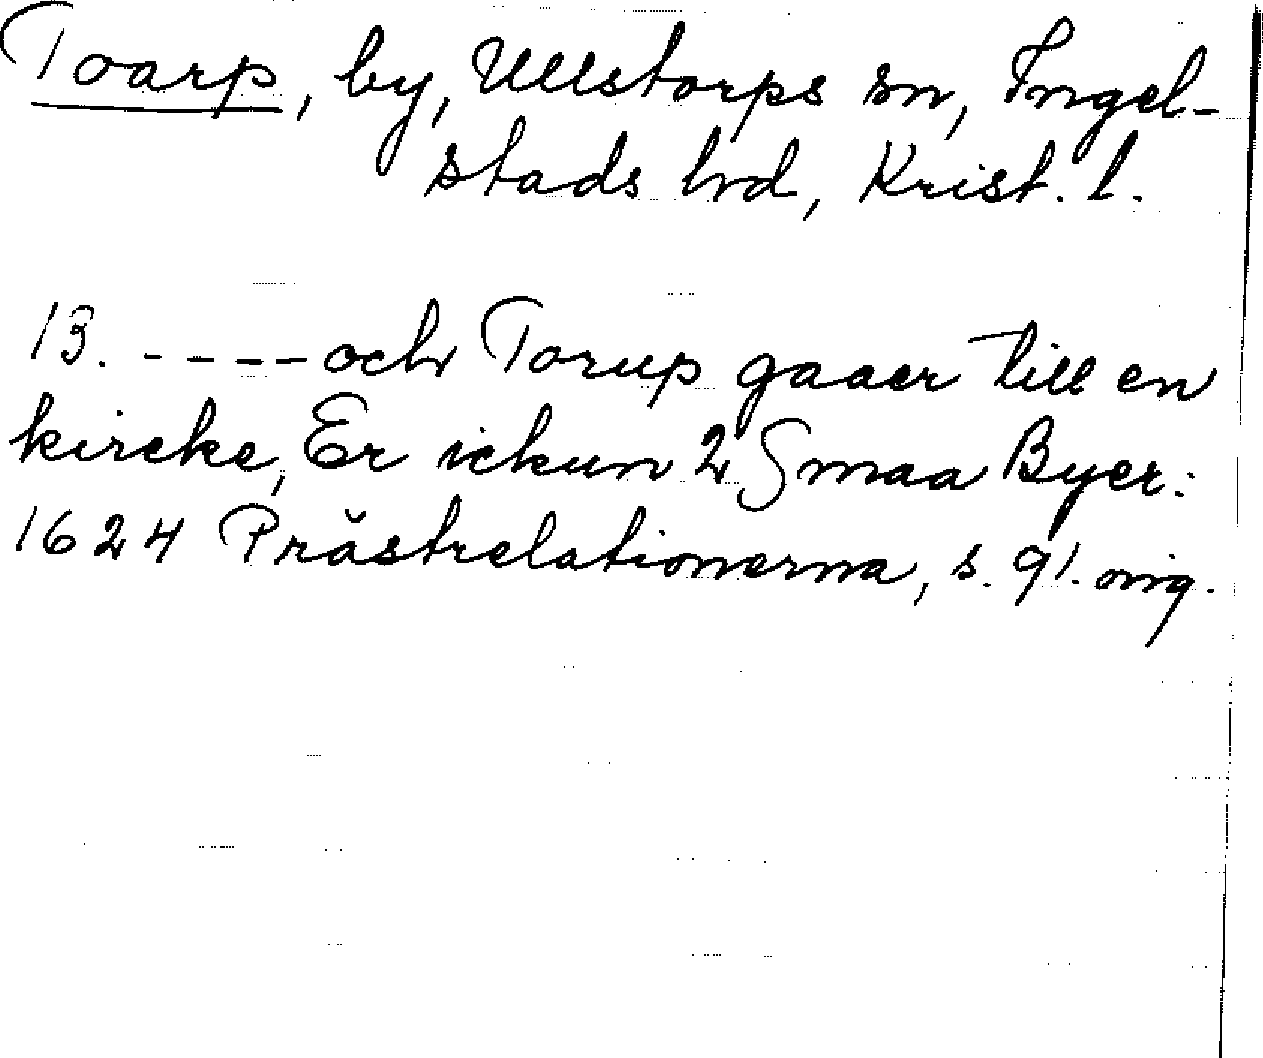 Toarp, by, Ullstorps sn, Ingel-
stads hd, Krist. l.
13. ---- och Torup gaaer till en
kircke, Er ickun 2 Smaa Byer:
1624 Prästrelationerna, s. 91. orig.